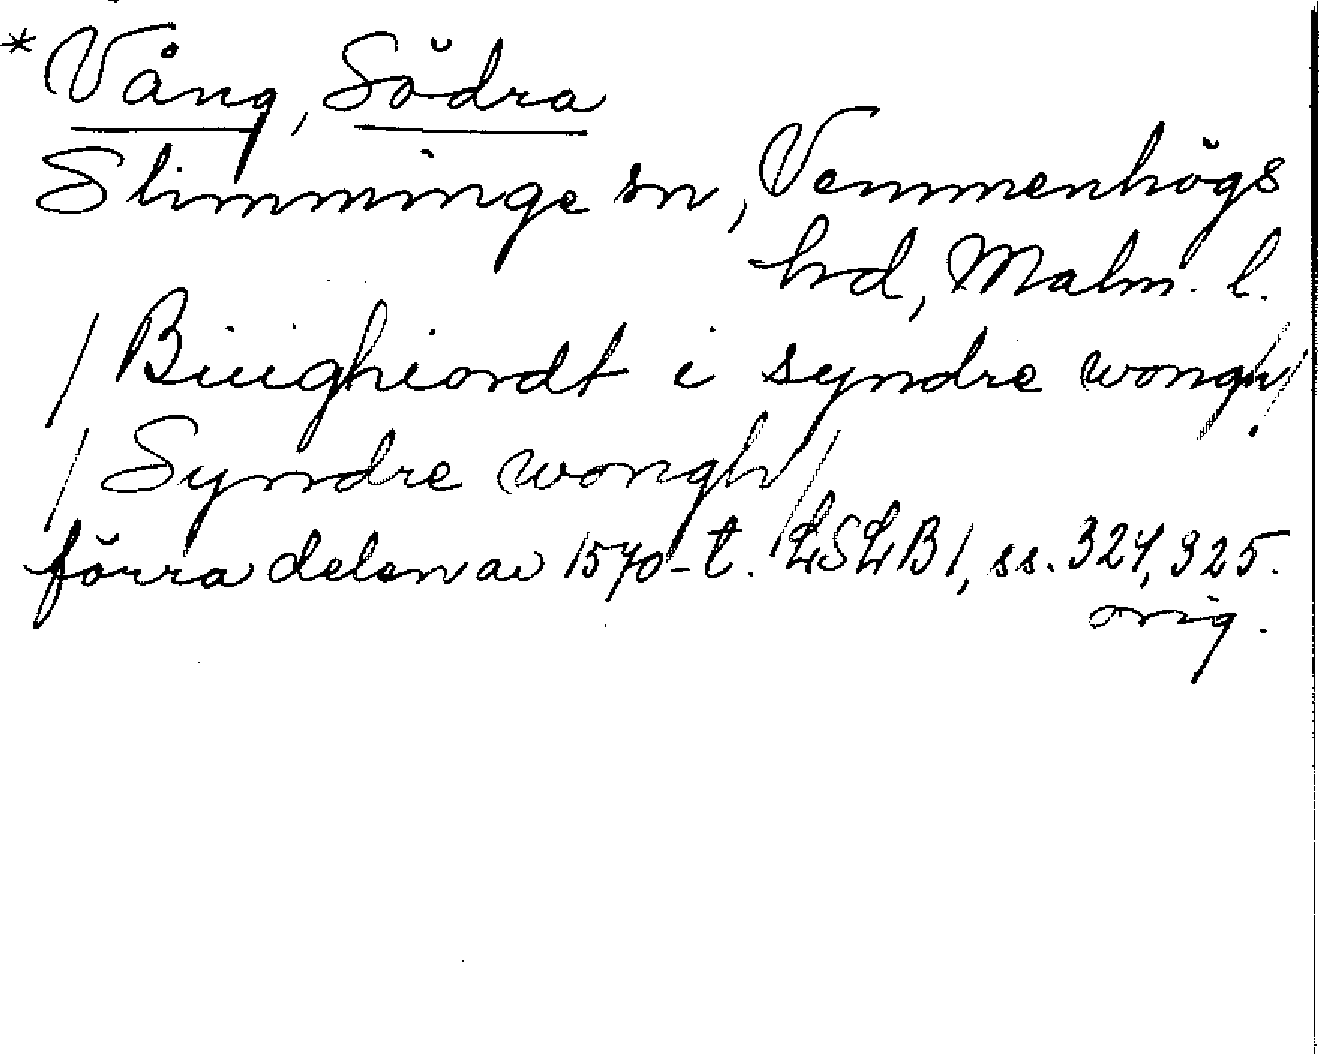 *Vång, Södra
Slimminge sn, Vemmenhögs
hrd, Malm. l.
/Biuighiordt i syndre wongh/.
/Syndre wongh/
förra delen av 1570-t. LSLB1, ss. 324, 325.
orig.